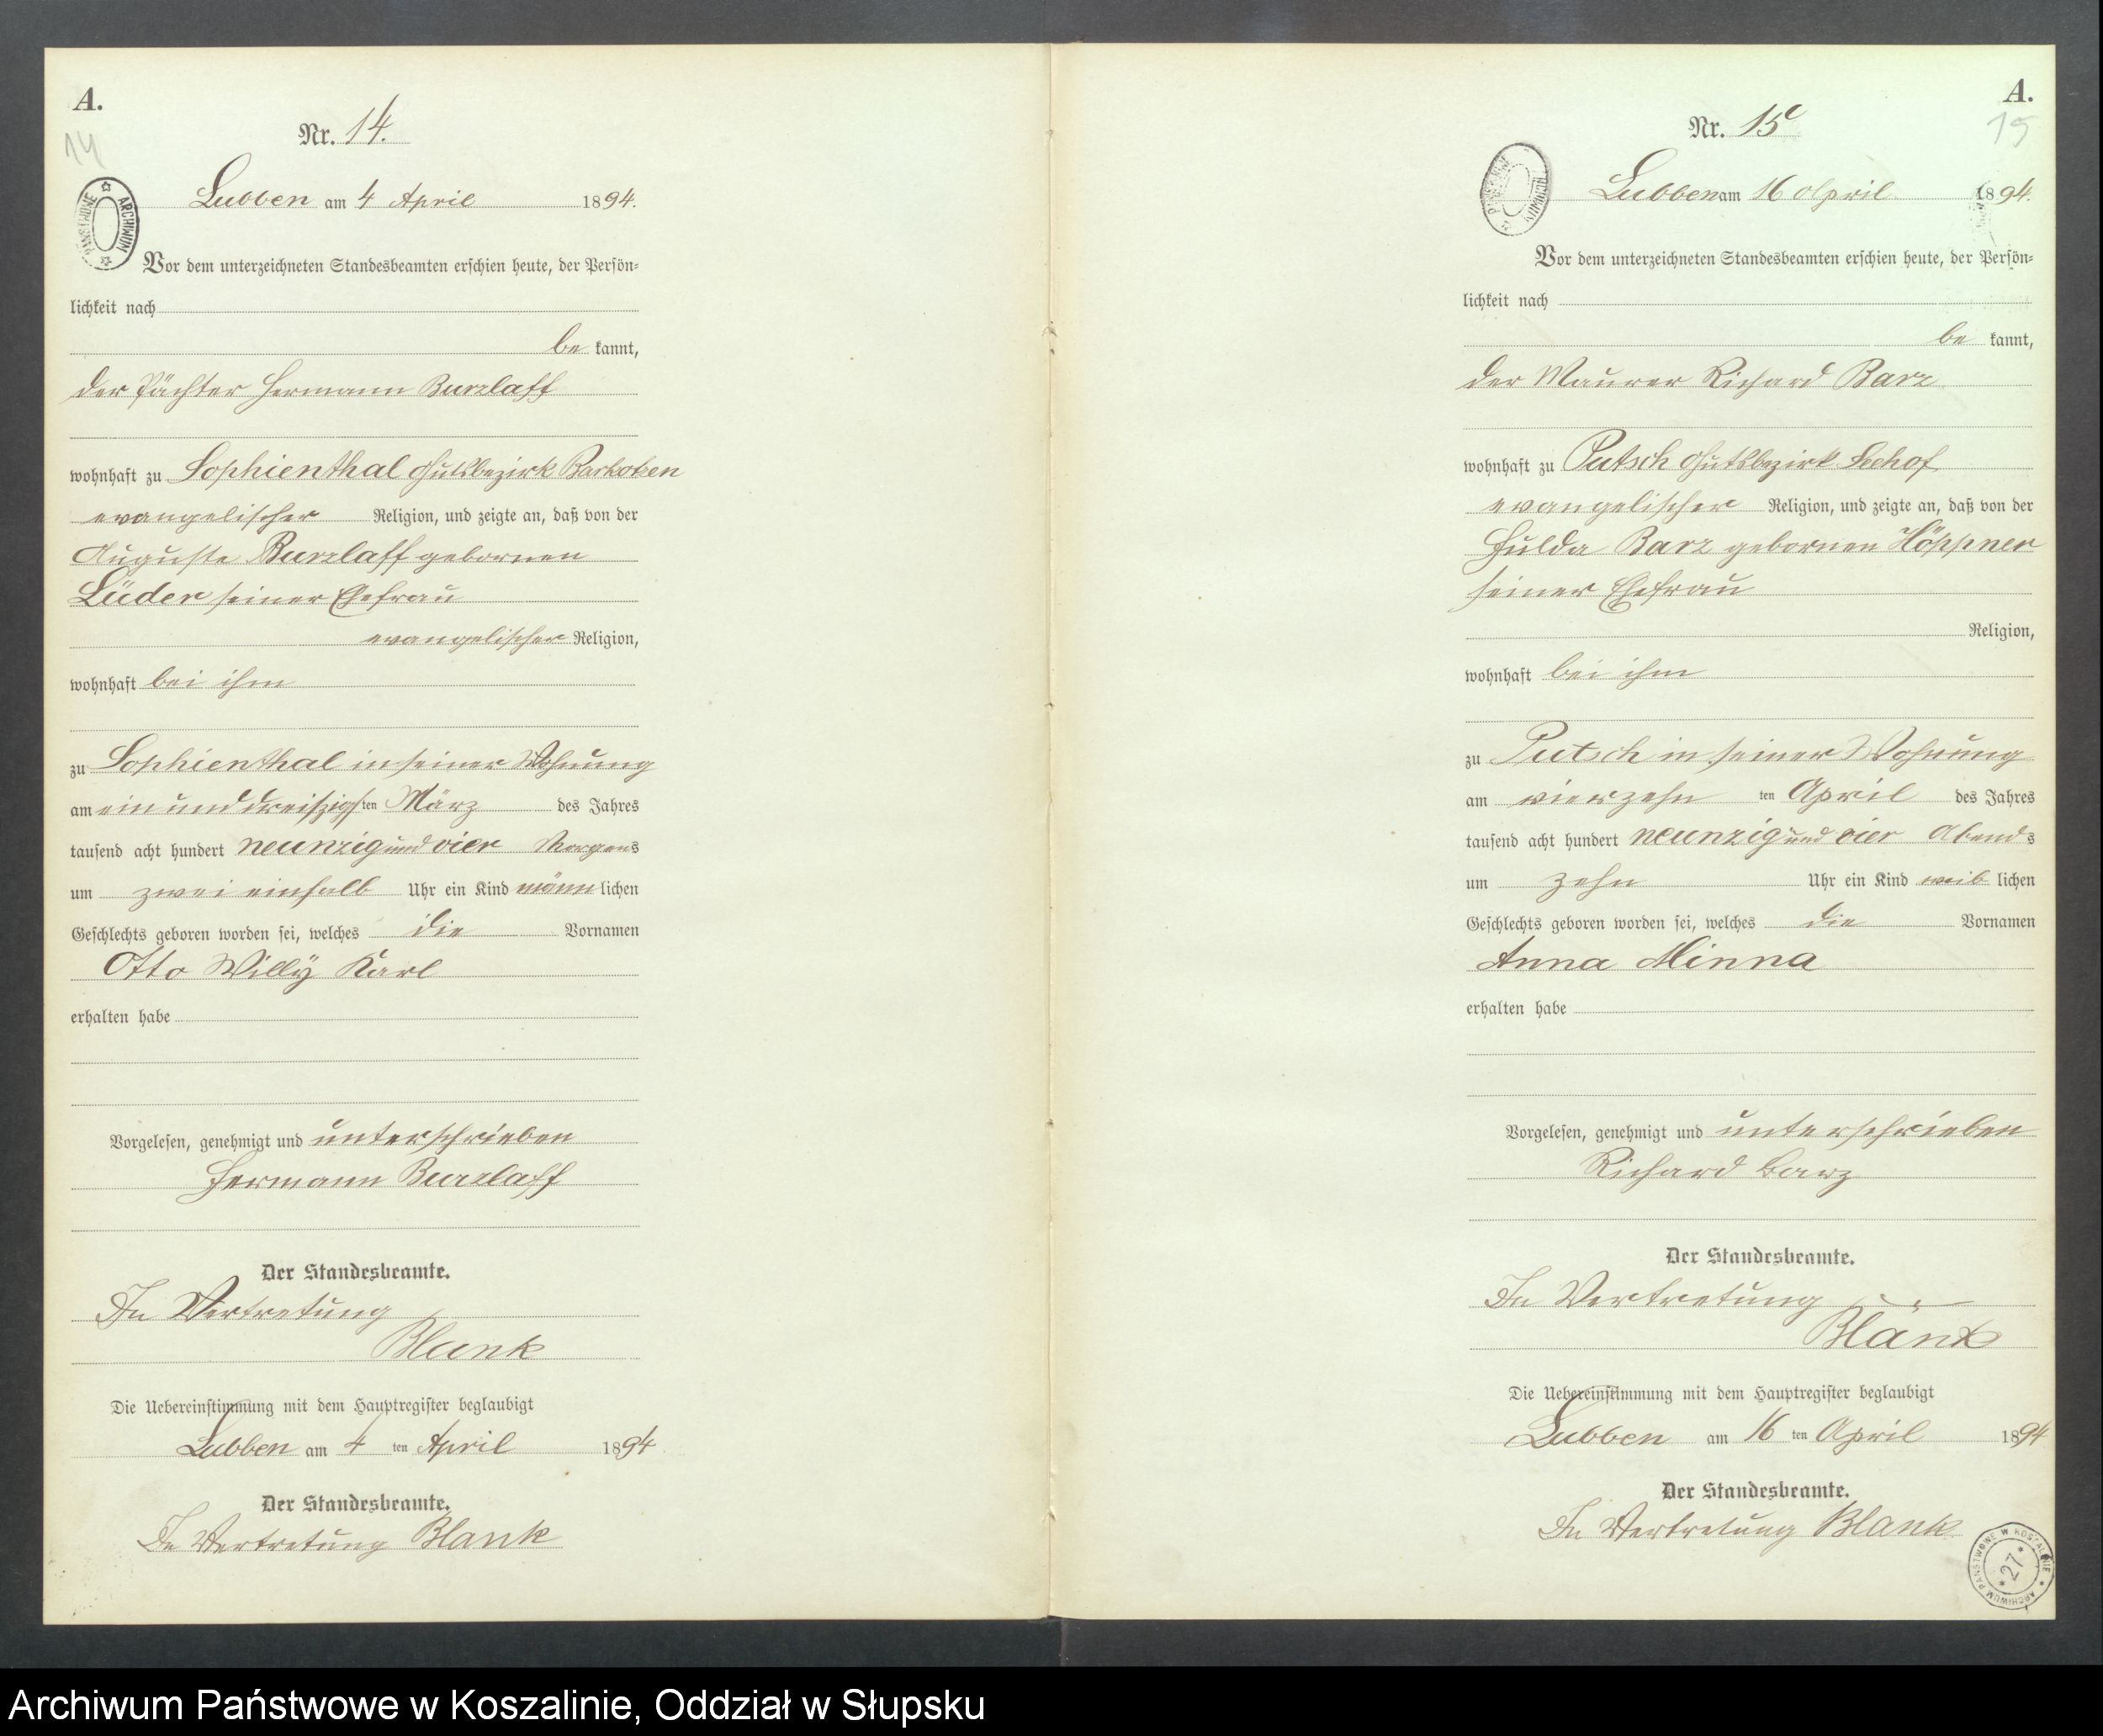 A.
14
Nr. 14.
Lubben am 4 April 1894.
PANSTWONE ARCHIWUM
Vor dem unterzeichneten Standesbeamten erschien heute, der Persön-
lichkeit nach
be kannt,
der Pächter Hermann Burzlaff
wohnhaft zu Sophienthal Gutsbezirk Barkotzen
evangelischer Religion, und zeigte an, daß von der
Auguste Burzlaff gebornen
Lüder seiner Ehefrau
evangelischer Religion,
wohnhaft bei ihm
zu Sophienthal in seiner Wohnung
am ein und dreißigsten März des Jahres
tausend acht hundert neunzig und vier Morgens
um zwei einhalb Uhr ein Kind männlichen
Geschlechts geboren worden sei, welches die Vornamen
Otto Willy Karl
erhalten habe
Vorgelesen, genehmigt und unterschrieben
Hermann Burzlaff
Der Standesbeamte.
In Vertretung
Blank
Die Uebereinstimmung mit dem Hauptregister beglaubigt
Lubben am 4 ten April 1894
Der Standesbeamte.
In Vertretung Blank
A.
15
Nr. 15
Lubben am 16 April 1894.
Vor dem unterzeichneten Standesbeamten erschien heute, der Persön-
lichkeit nach
be kannt,
der Maurer Richard Barz
wohnhaft zu Putsch Gutsbezirk Seehof
evangelischer Religion, und zeigte an, daß von der
Hulda Barz gebornen Höppner
seiner Ehefrau
Religion,
wohnhaft bei ihm
zu Putsch in seiner Wohnung
am vierzehn ten April des Jahres
tausend acht hundert neunzig und vier Abends
um zehn Uhr ein Kind weib lichen
Geschlechts geboren worden sei, welches die Vornamen
Anna Minna
erhalten habe
Vorgelesen, genehmigt und unterschrieben
Richard Barz
Der Standesbeamte.
In Vertretung
Blank
Die Uebereinstimmung mit dem Hauptregister beglaubigt
Lubben am 16 ten April 1894
Der Standesbeamte.
In Vertretung Blank
ARCHIWUM PAŃSTWOWE W KOSZALINIE
*27*
Archiwum Państwowe w Koszalinie, Oddział w Słupsku